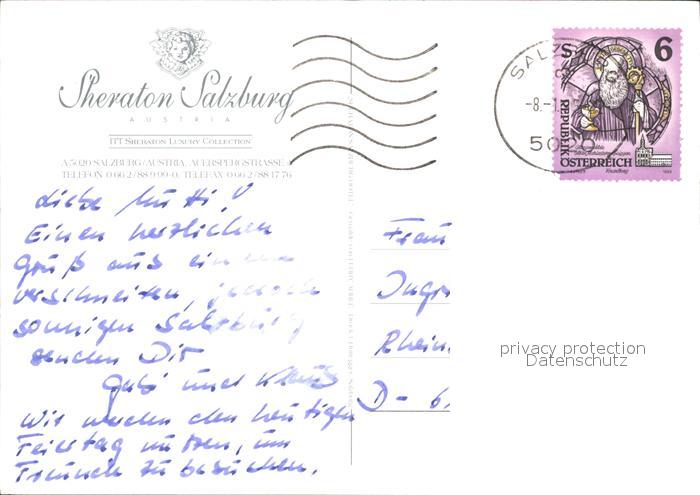 Sheraton Salzburg
AUSTRIA
ITT SHERATON LUXURY COLLECTION
A-5020 SALZBURG/AUSTRIA, AUERSPERGSTRASSE 4
TELEFON 0 66 2/88 9 99-0, TELEFAX 0 66 2/88 17 76
Liebe Mutti!
Einen herzlichen
Gruß aus einem
verschneiten, jedoch
sonnigen Salzburg
senden Dir
Gabi und Klaus
Wir werden den heutigen
Feiertag nutzen, um
Freunde zu besuchen.
SALZ
-8.-1.
50
S 6
REPUBLIK
ÖSTERREICH
Frau
Ingr
Rhein
D - 6
privacy protection
Datenschutz